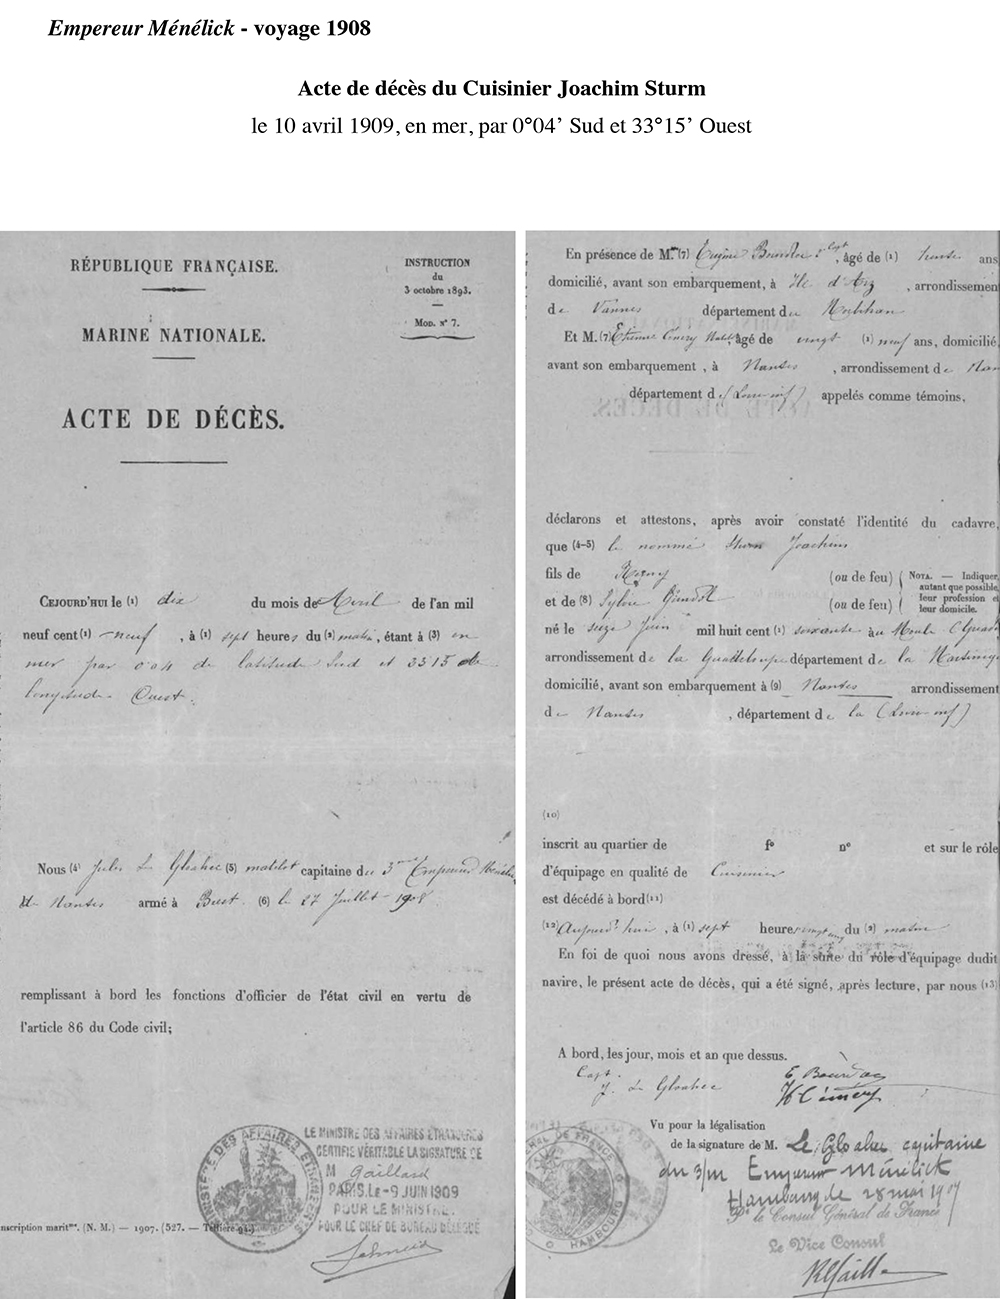 Empereur Ménélick - voyage 1908
Acte de décès du Cuisinier Joachim Sturm
le 10 avril 1909, en mer, par 0°04’ Sud et 33°15’ Ouest
RÉPUBLIQUE FRANÇAISE.
MARINE NATIONALE.
INSTRUCTION
du
3 octobre 1893.
Mod. n° 7.
ACTE DE DÉCÈS.
Cejourd'hui le (1) dix du mois de Avril de l'an mil
neuf cent (1) neuf, à (1) sept heures du (2) matin, étant à (3) en
mer par 0.04 de latitude Sud et 3315 de
longitude Ouest.
Nous (4) Jules Le Gloahec (5) capitaine du 3m Empereur Ménélick
de Nantes armé à (6) le 27 Juillet 1908
remplissant à bord les fonctions d'officier de l'état civil en vertu de
l'article 86 du Code civil;
MINISTÈRE DES AFFAIRES ÉTRANGÈRES
LE MINISTRE DES AFFAIRES ÉTRANGÈRES
CERTIFIE VÉRITABLE LA SIGNATURE DE
M Gaillard
PARIS. Le - 9 JUIN 1909
POUR LE MINISTRE.
POUR LE CHEF DE BUREAU DÉLÉGUÉ
nscription marit. (N. M.) — 1907. (527. —
En présence de M. (7) Eugène, âgé de (1) trente ans
domicilié, avant son embarquement, à Ile d'Arz, arrondissemen
de Vannes département du Morbihan
Et M. (7) Etienne, âgé de vingt (1) neuf ans, domicilié,
avant son embarquement, à Nantes, arrondissement de Nan
département d (Loire inf) appelés comme témoins,
déclarons et attestons, après avoir constaté l'identité du cadavre,
que (4-5) le nommé Sturm Joachim
fils de Rémy (ou de feu)
et de (8) Sylvie (ou de feu)
Nota. — Indiquer,
autant que possible,
leur profession et
leur domicile.
né le seize Juin mil huit cent (1) soixante au Moule (Guad
arrondissement de la Guadeloupe département de la Martiniq
domicilié, avant son embarquement à (9) Nantes arrondissement
de Nantes, département de la (Loire inf)
(10)
inscrit au quartier de f° n° et sur le rôle
d'équipage en qualité de Cuisinier
est décédé à bord (11)
(12) Aujourd'hui, à (1) sept heures du (2) matin
En foi de quoi nous avons dressé, à la suite du rôle d'équipage dudit
navire, le présent acte de décès, qui a été signé, après lecture, par nous (13)
A bord, les jour, mois et an que dessus.
Capt.
J. Le Gloahec
Vu pour la légalisation
de la signature de M. Le Gloahec capitaine
du 3/m Empereur Ménélick
Hambourg le 28 mai 1909
Pr le Consul Général de France
Le Vice Consul